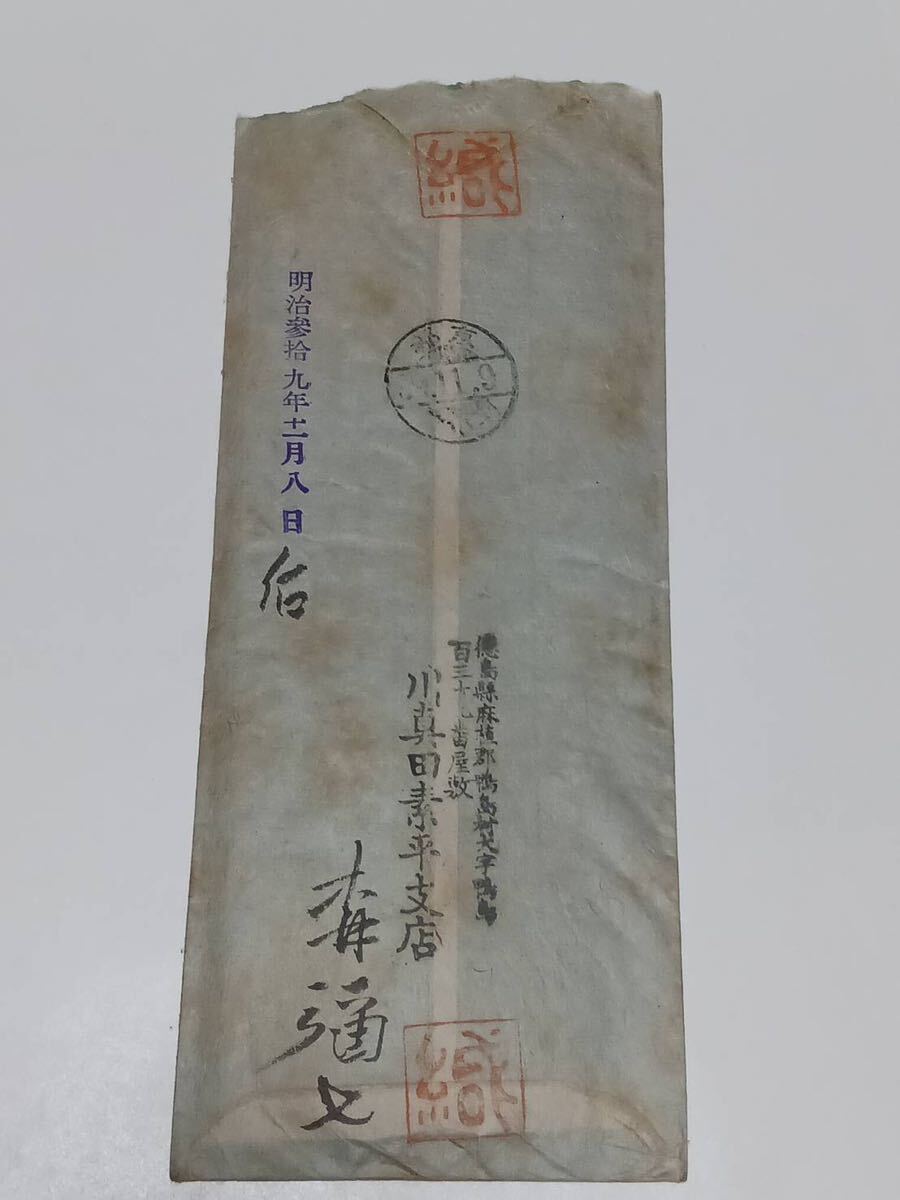 緘
11.9
徳島縣麻植郡鴨島村大字鴨島
百三十九番屋敷
川真田素平支店
明治參拾九年十一月八日
緘